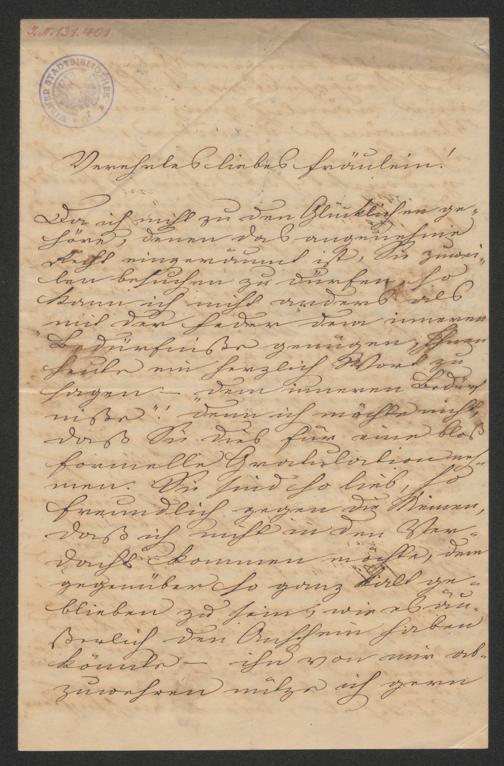 J.N. 131.401
WIENER STADTBIBLIOTHEK
Verehrtes liebes Fräulein!
Da ich nicht zu den Glücklichen ge-
höre, denen das angenehme
Recht eingeräumt ist, Sie zuwei-
len besuchen zu dürfen, so
kann ich nicht anders als
mit der Feder dem inneren
Bedürfnisse genügen, Ihnen
heute ein herzlich Wort zu
sagen — „dem inneren Bedürf
nisse“! denn ich möchte nicht,
daß Sie dies für eine blos
formelle Gratulation neh-
men. Sie sind so lieb, so
freundlich gegen die Meinen,
daß ich nicht in den Ver-
dacht kommen möchte, dem
gegenüber so ganz kalt ge-
blieben zu sein, wie es äu-
ßerlich den Anschein haben
könnte — ihn von mir ab-
zuwehren nütze ich gern